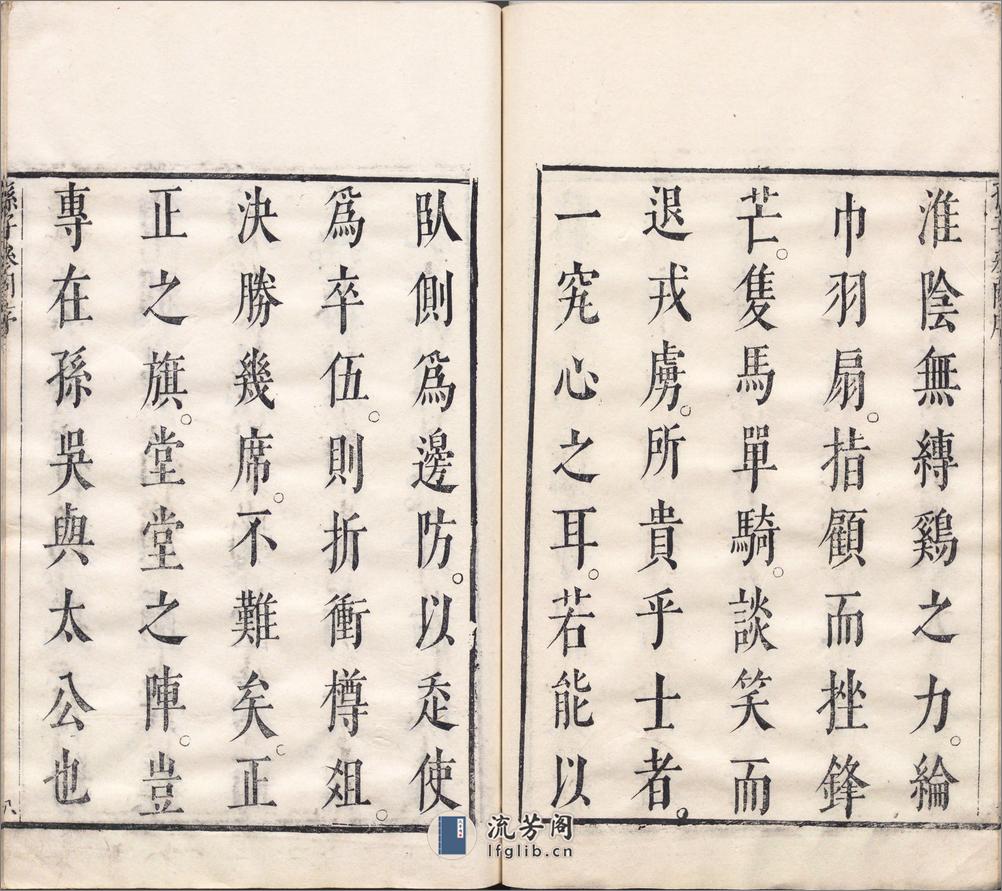 淮陰無縛鷄之力。綸
巾羽扇。指顧而挫鋒
芒。隻馬單騎。談笑而
退戎虜。所貴乎士者。
一究心之耳。若能以
臥側爲邊防。以走使
爲卒伍。則折衝樽俎。
決勝幾席。不難矣。正
正之旗。堂堂之陣。豈
專在孫吳與太公也
流芳阁
lfglib.cn